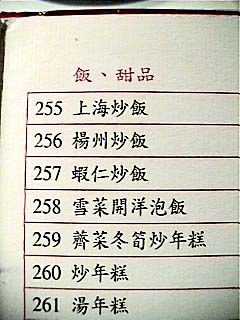 飯、甜品
255 上海炒飯
256 楊州炒飯
257 蝦仁炒飯
258 雪菜開洋泡飯
259 薺菜冬筍炒年糕
260 炒年糕
261 湯年糕